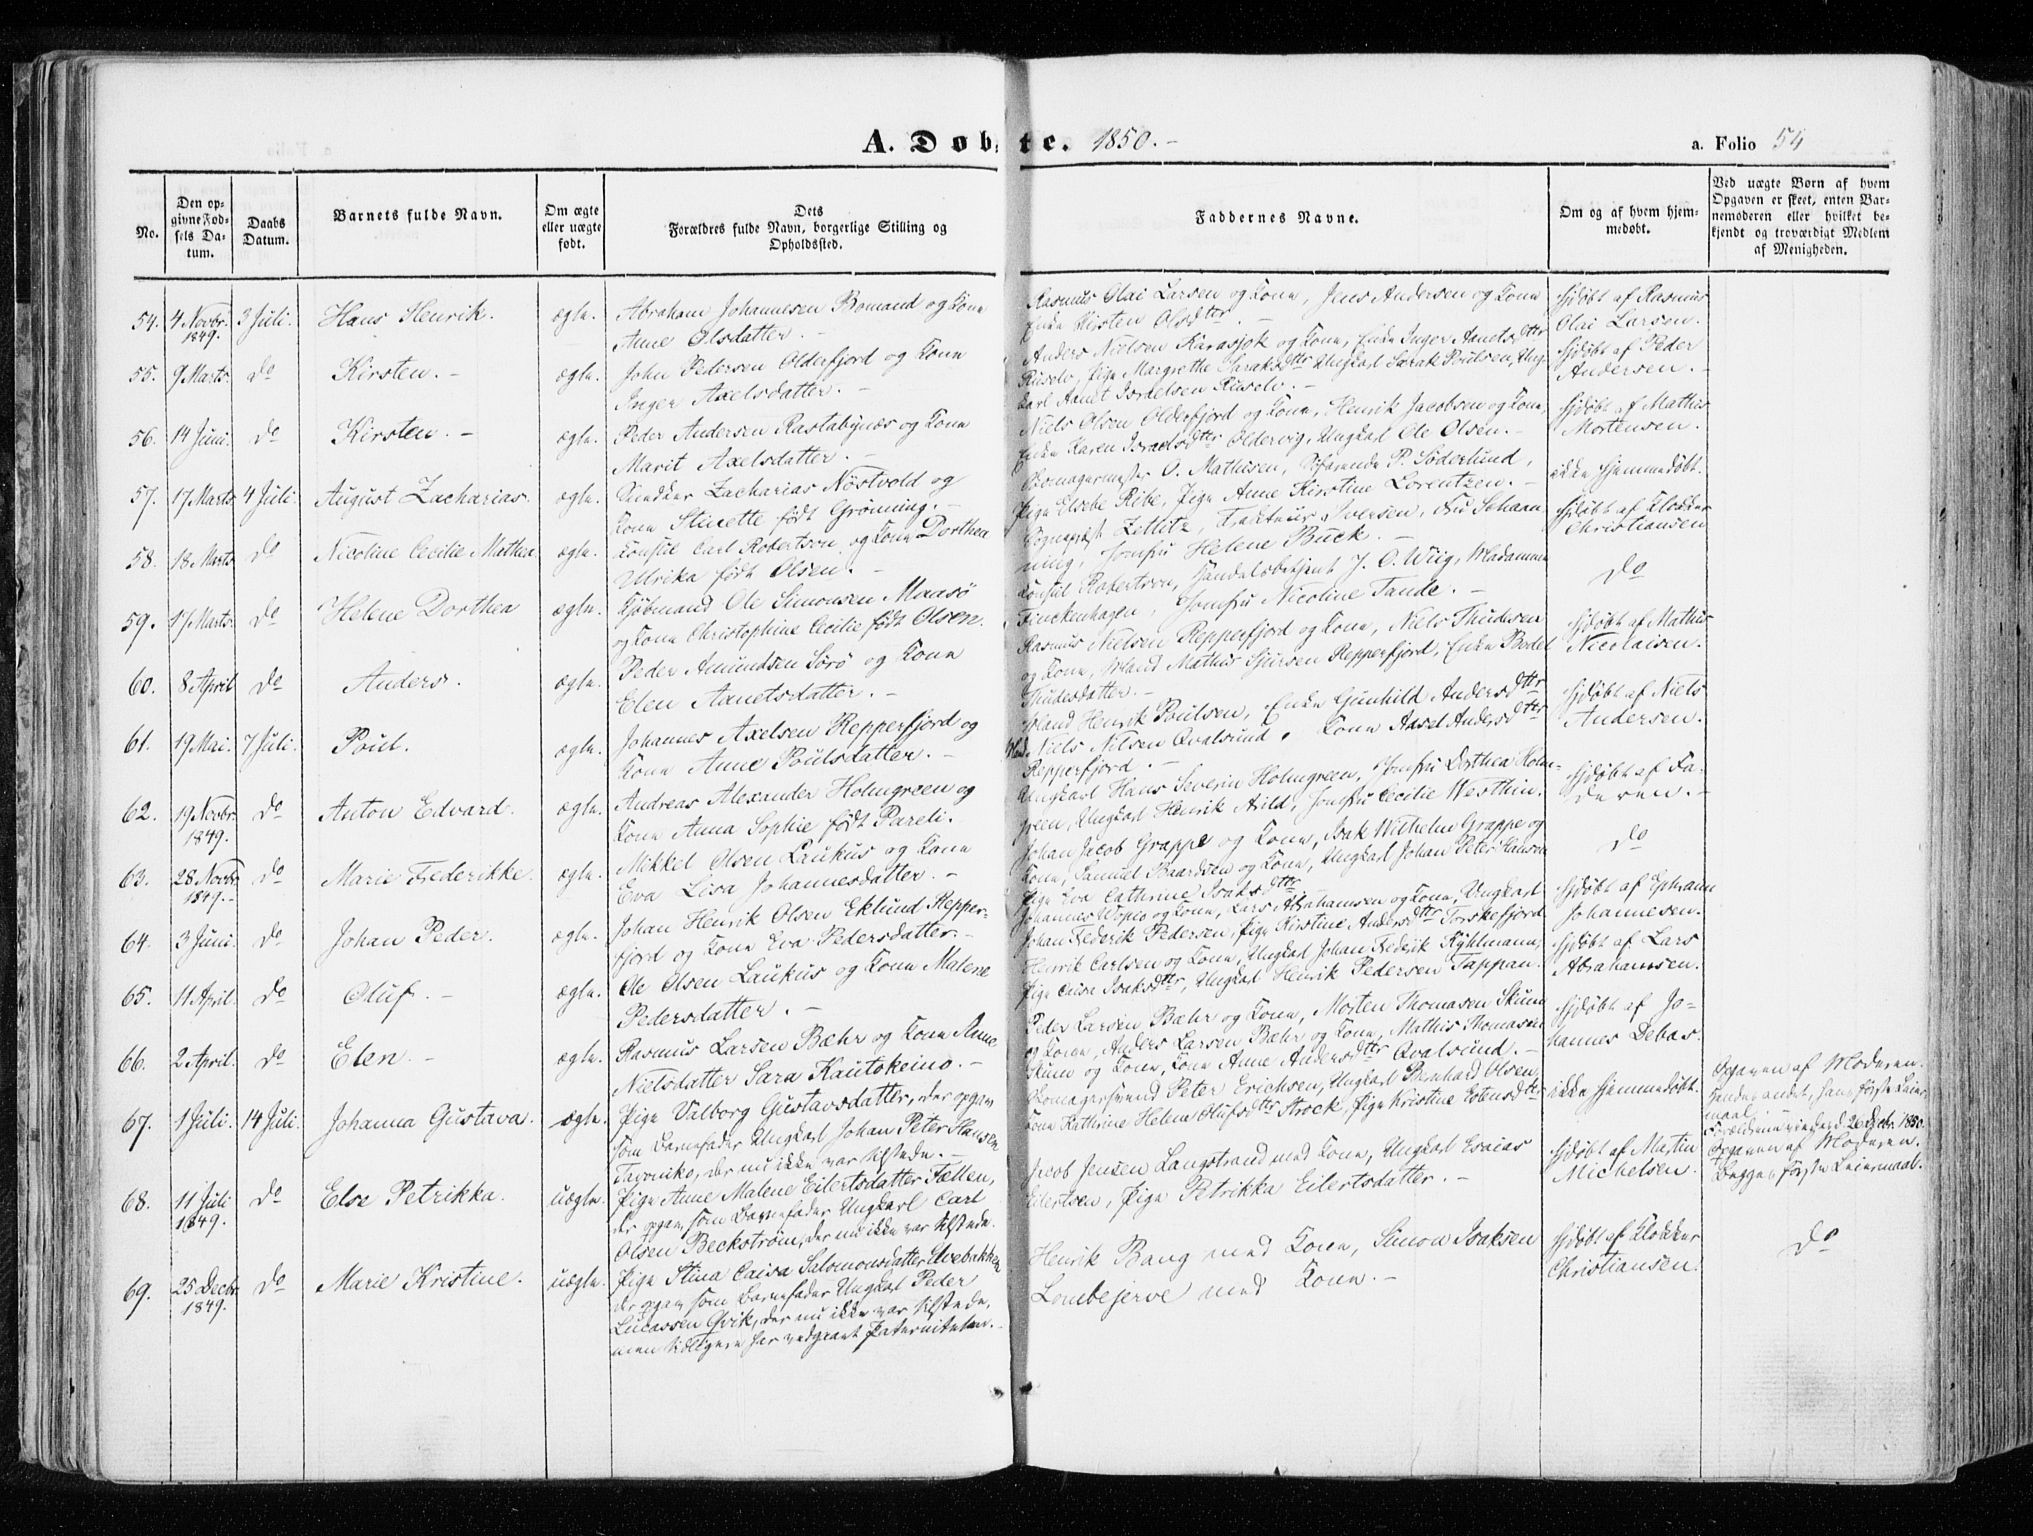 A. Døbte. 1850.-
a. Folio 54
No.
Den opgivne Fødsels Datum.
Daabs Datum.
Barnets fulde Navn.
Om ægte eller uægte født.
Dets Forældres fulde Navn, borgerlige Stilling og Opholdssted.
Faddernes Navne.
Om og af hvem hjemmedøbt.
Ved uægte Børn af hvem Opgaven er skeet, enten Barnemoderen eller hvilket bekjendt og troværdigt Medlem af Menigheden.
54. 4 Novbr. 1849. 3 Juli. Hans Henrik. ægte.
Abraham Johannesen Bomand og Kone
Anne Olsdatter.-
Rasmus Olai Larsen og Kone, Jens Andersen og Kone
Enke Kirsten Olsdtr.-
Hjdøbt af Rasmus
Olai Larsen.
55. 9 Marts. do Kirsten.- ægte.
John Pedersen Olderfjord og Kone
Inger Axelsdatter.-
Anders Nielsen Karasjok og Kone, Enke Inger Aanetsdtr
Ruselv, Pige Margrethe Saraksdtr Ungkarl Sarak Poulsen, Ung-
karl Aanet Israelsen Ruselv.-
Hjdøbt af Peder
Andersen.-
56. 14 Juni. do Kirsten.- ægte.
Peder Andersen Rastabynæs og Kone
Marit Axelsdatter.-
Niels Olsen Olderfjord og Kone, Henrik Jacobsen og Kone,
Enke Karen Israelsdtr Oldervig, Ungkarl Ole Olsen.-
Hjdøbt af Mathis
Mortensen.
57. 17 Marts 4 Juli. August Zacharias. ægte.
Snedker Zacharias Nöstvold og
Kone Stinette født Grønning.-
Skomagermester O. Mathisen, P. Söderlund,
Pige Elsebe Ribe, Pige Anne Kirstine Lorentzen.-
ikke hjemmedøbt.
58. 18 Marts do Nicoline Cecilie Mathea ægte.
Konsul Carl Robertson og Kone Dorthea
Ulrika født Olsen.-
Sognepræst Zetlitz, Fru
Jomfru Helene Buck.-
Hjdøbt af Klokker
Christiansen
59. 17 Marts. do Helene Dorthea ægte.
Kjøbmand Ole Simonsen Maasö
og Kone Christophine Cecilie født Olsen.
Konsul Robertson, Handelsbetjent J. O. Wiig, Madamme
Finckenhagen, Jomfru Nicoline Tande.-
do
60. 8 April do Anders. ægte.
Peder Amundsen Sörö og Kone
Elen Aanetsdatter.-
Rasmus Nielsen Repperfjord og Kone, Niels Thudesen
og Kone, Mand Mathis Sjursen Repperfjord, Enke Bodel
Thudesdatter.-
Hjdøbt af Mathis
Nicolaisen.
61. 19 Mai. 7 Juli. Poul. ægte.
Johannes Axelsen Repperfjord og
Kone Anne Poulsdatter.-
Mand Henrik Poulsen, Enke Gunhild Andersdtr
Mand Niels Nilsen Qvalsund. Kone Aasel Andersdtr
Repperfjord.-
Hjdøbt af Niels
Andersen.
62. 19 Novbr. 1849. do Anton Edvard. ægte.
Andreas Alexander Holmgreen og
Kone Anna Sophie født Pareli.
Ungkarl Hans Severin Holmgreen, Jomfru Dorthea Holm-
green, Ungkarl Henrik Arild, Jomfru Cecilie Westhin.
Hjdøbt af Fa-
deren.-
63. 28 Novbr 1849.- do Marie Frederikke. ægte.
Mikkel Olsen Laukus og Kone
Eva Lisa Johannesdatter.-
Johan Jacob Grappe og Kone, Isak Wilhelm Grappe og
Kone, Samuel Baardsen og Kone, Ungkarl Johan Peter Hansen
Pige Eva Cathrine Isaksdtr
do
64. 3 Juni. do Johan Peder. ægte.
Johan Henrik Olsen Eklund Repper-
fjord og Kone Eva Pedersdatter.-
Johannes Wopio og Kone, Lars Abrahamsen og Kone, Ungkarl
Johan Frederik Pedersen, Pige Kirstine Andersdtr Torskefjord
Hjdøbt af Ephraim
Johannesen.
65. 11 April. do Oluf.- ægte.
Ole Olsen Laukus og Kone Malene
Pedersdatter.-
Henrik Carlsen og Kone, Ungkarl Johan Frederik Kyhlmann,
Pige Caisa Isaksdtr, Ungkarl Henrik Pedersen Tappan.
Hjdøbt af Lars
Abrahamsen.
66. 2 April. do Elen.- ægte.
Rasmus Larsen Bæhr og Kone Anne
Nielsdatter Sara Kautokeino.-
Peder Larsen Bæhr og Kone, Morten Thomasen Skum
og Kone, Anders Larsen Bæhr og Kone, Mathis Thomasen
Skum og Kone, Kone Anne Andersdtr Qvalsund.-
Hjdøbt af Jo-
hannes Debas.
67. 1 Juli. 14 Juli. Johanna Gustava. ægte.
Pige Valborg Gustavsdatter, der opgav
som Barnefader Ungkarl Johan Peter Hansen
der nu ikke var tilstede.-
Skomagersvend Peter Erichsen, Ungkarl Bernhard Olsen,
Kone Kathrine Helene Olufsdtr Strock, Pige Kristine Estensdtr
ikke hjemmedøbt.
Opgaven af Moderen.
Hendes andet, hans første Leier-
maal
Forældrene viede 26 Decbr. 1850.
68. 11 Juli 1849. do Else Petrikka. uægte.
Pige Anne Malene Eilertsdatter Fællen,
der opgav som Barnefader Ungkarl Carl
Olsen Beckström, der nu ikke var tilstede.
Jacob Jensen Langstrand med Kone, Ungkarl Esaias
Eilertsen, Pige Petrikka Eilertsdatter.-
Hjdøbt af Martin
Michelsen.
Opgaven af Moderen.
Begges første Leiermaal.
69. 25 Decbr 1849. do Marie Kristine. uægte.
Pige Stina Caisa Salomonsdatter Elvebakken
der opgav som Barnefader Ungkarl Peder
Lucassen Qvik, der nu ikke var tilstede,
men tidligere har vedgaaet Paterniteten.-
Henrik Bang med Kone, Simon Isaksen
Lombejerve med Kone.-
Hjdøbt af Klokker
Christiansen.
do